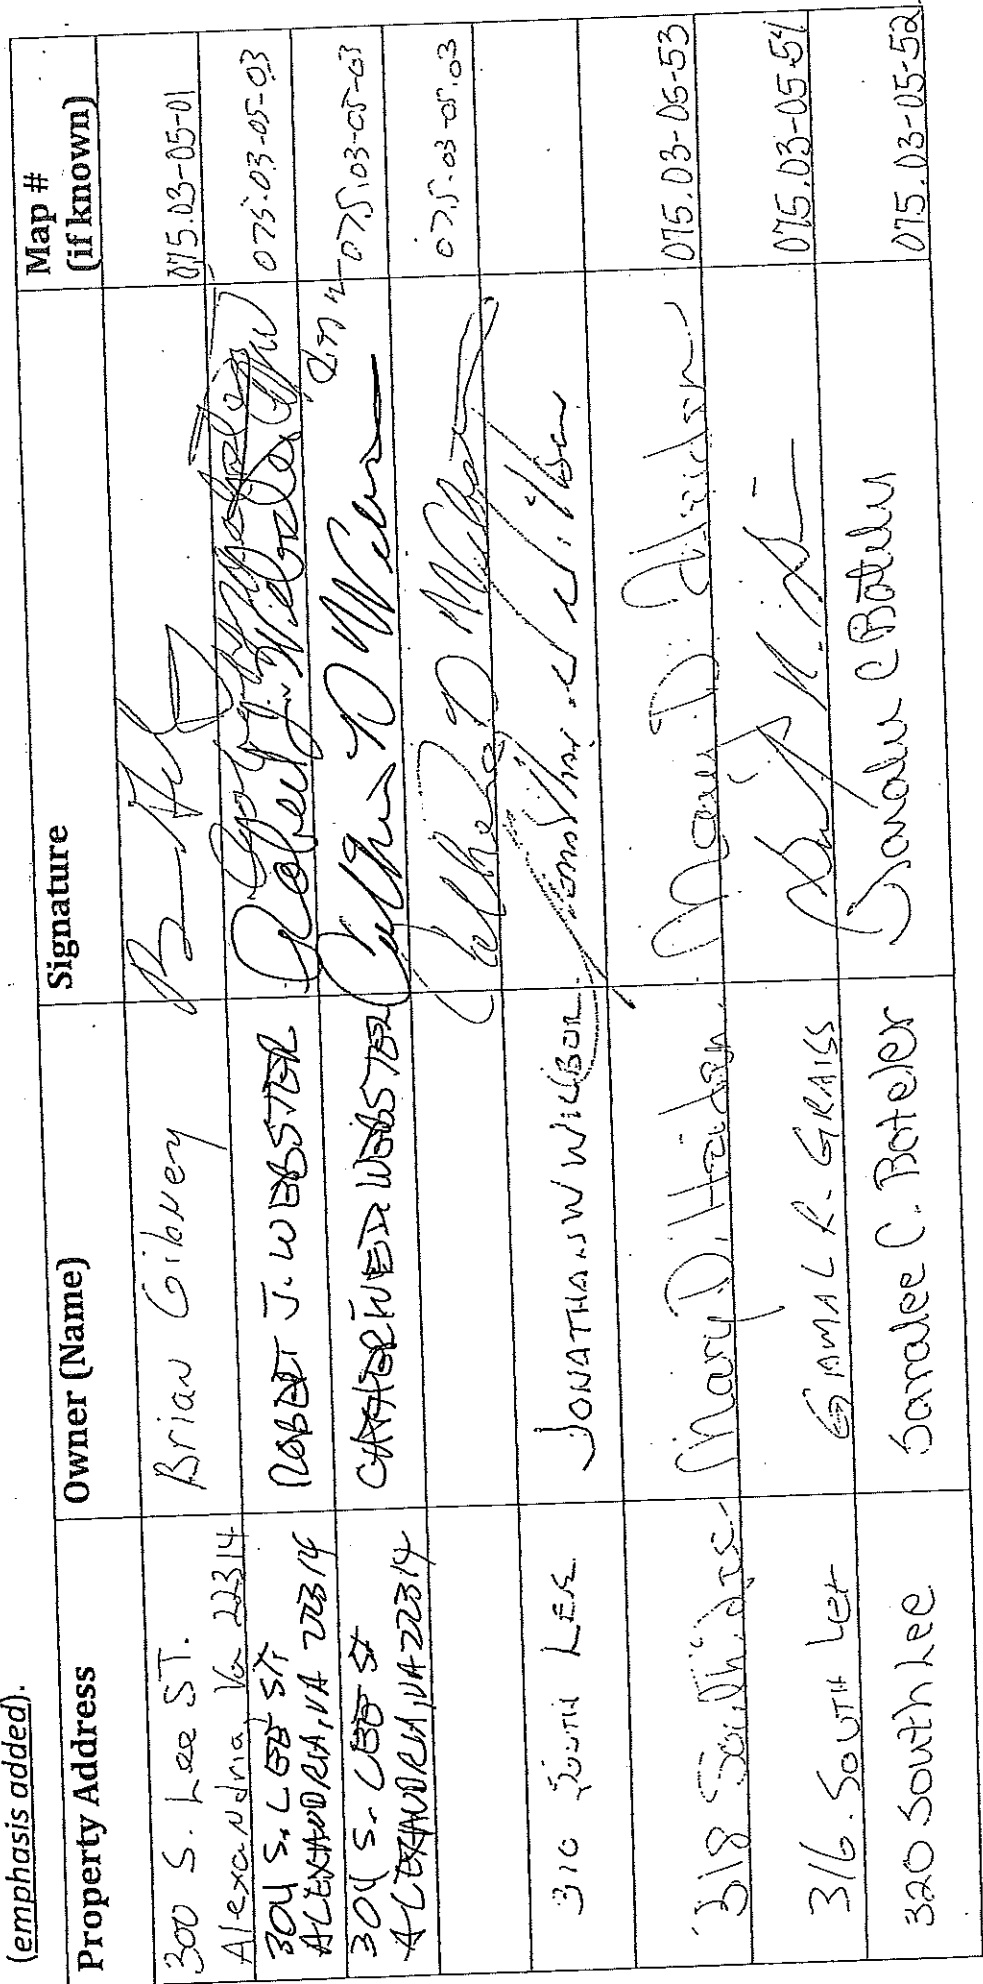 (emphasis added).
Property Address Owner (Name) Signature Map #
(if known)
300 S. Lee ST.
Alexandria, Va 22314 Brian Gibney 075.03-05-01
304 S. LEE ST,
ALEXANDRIA, VA 22314 ROBERT J. WEBSTER 075.03-05-03
304 S. LEE ST
ALEXANDRIA, VA 22314 CATHERINE D. WEBSTER 075.03-05-03
075.03-05.03
310 SOUTH LEE JONATHAN W WILBOR
318 South Lee Mary D. Haidon Mary D. Haidon 075.03-05-53
316. SOUTH Lee GAMAL R. GRAISS 075.03-05-54
320 South Lee Saralee C. Boteler Saralee C Boteler 075.03-05-52